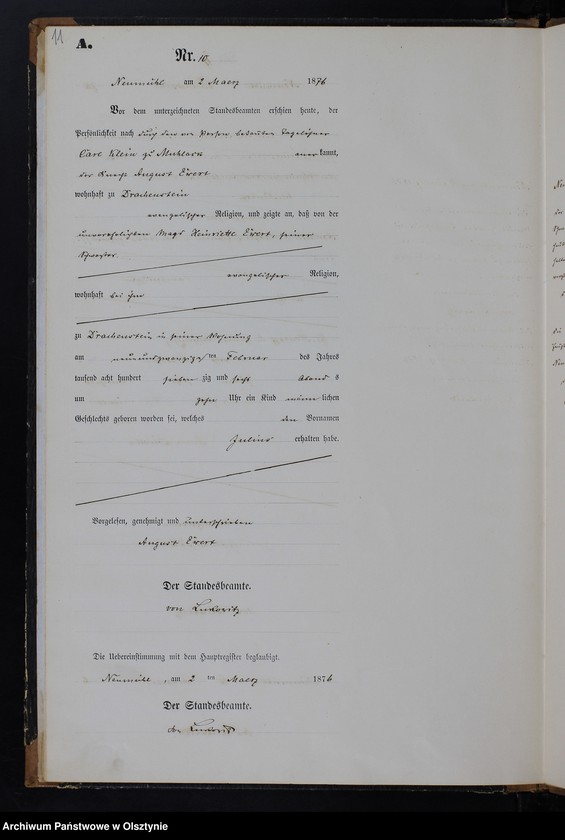 11
A.
Nr. 10
Neumühl am 2 Maerz 1876
Vor dem unterzeichneten Standesbeamten erschien heute, der
Persönlichkeit nach durch den von Person bekannten Tagelöhner
Carl Klein zu Muhlack anerkannt,
der Knecht August Ewert
wohnhaft zu Drachenstein
evangelischer Religion, und zeigte an, daß von der
unverehelichten Magd Heinriette Ewert, seiner
Schwester
evangelischer Religion,
wohnhaft bei ihm
zu Drachenstein in seiner Wohnung
am neunundzwanzigsten Februar des Jahres
tausend acht hundert siebenzig und sechs Abends
um zehn Uhr ein Kind männlichen
Geschlechts geboren worden sei, welches den Vornamen
Julius erhalten habe.
Vorgelesen, genehmigt und unterschrieben
August Ewert
Der Standesbeamte.
von
Die Uebereinstimmung mit dem Hauptregister beglaubigt.
Neumühl, am 2 ten Maerz 1876
Der Standesbeamte.
von
Archiwum Państwowe w Olsztynie